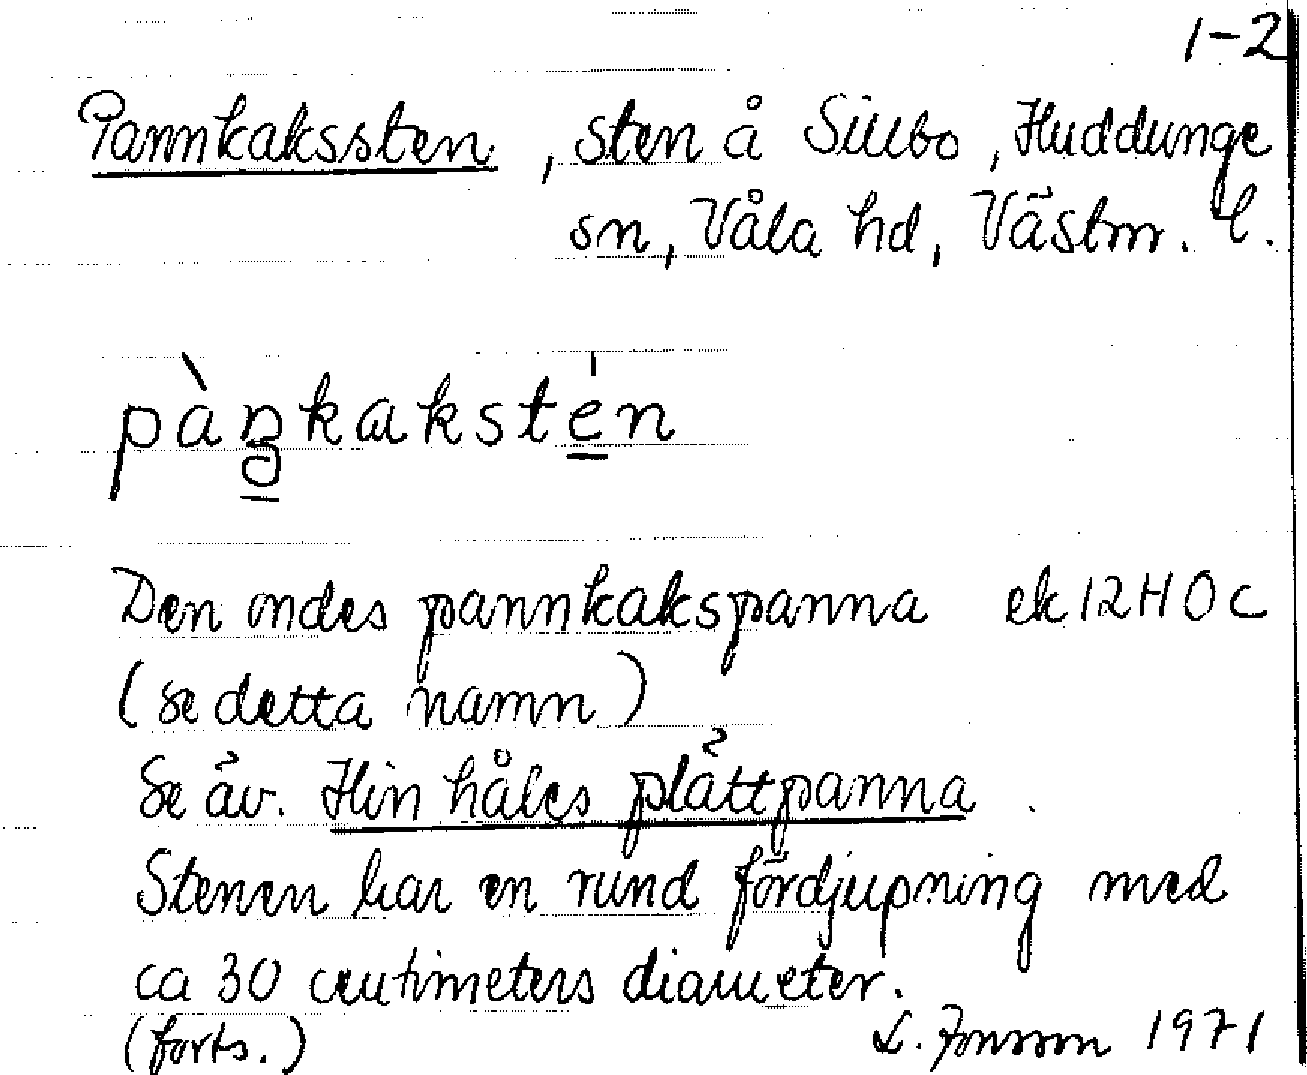 1-2
Pannkakssten, sten å Sillbo, Huddunge
sn, Våla hd, Västm. l.
pàŋkakstén
Den ondes pannkakspanna ek 12H0c
(se detta namn)
Se äv. Hin håles plättpanna.
Stenen har en rund fördjupning med
ca 30 centimeters diameter.
(forts.) L. Jonsson 1971